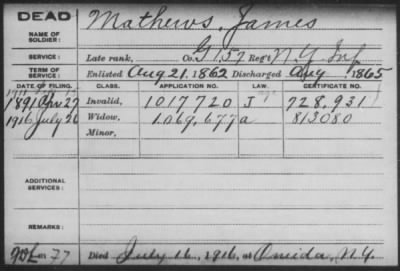 DEAD
NAME OF SOLDIER:
Mathews, James
SERVICE:
Late rank, Co. G 157 Reg't N.Y. Inf
TERM OF SERVICE:
Enlisted Aug 21. 1862 Discharged Aug 1865
DATE OF FILING. CLASS. APPLICATION NO. LAW. CERTIFICATE NO.
1891 Apr 27 Invalid, 1017720 J 728,931
1916 July 26 Widow, 1.069,677 a 813080
Minor,
ADDITIONAL SERVICES:
REMARKS:
77 Died July 16, 1916, at Oneida, N.Y.